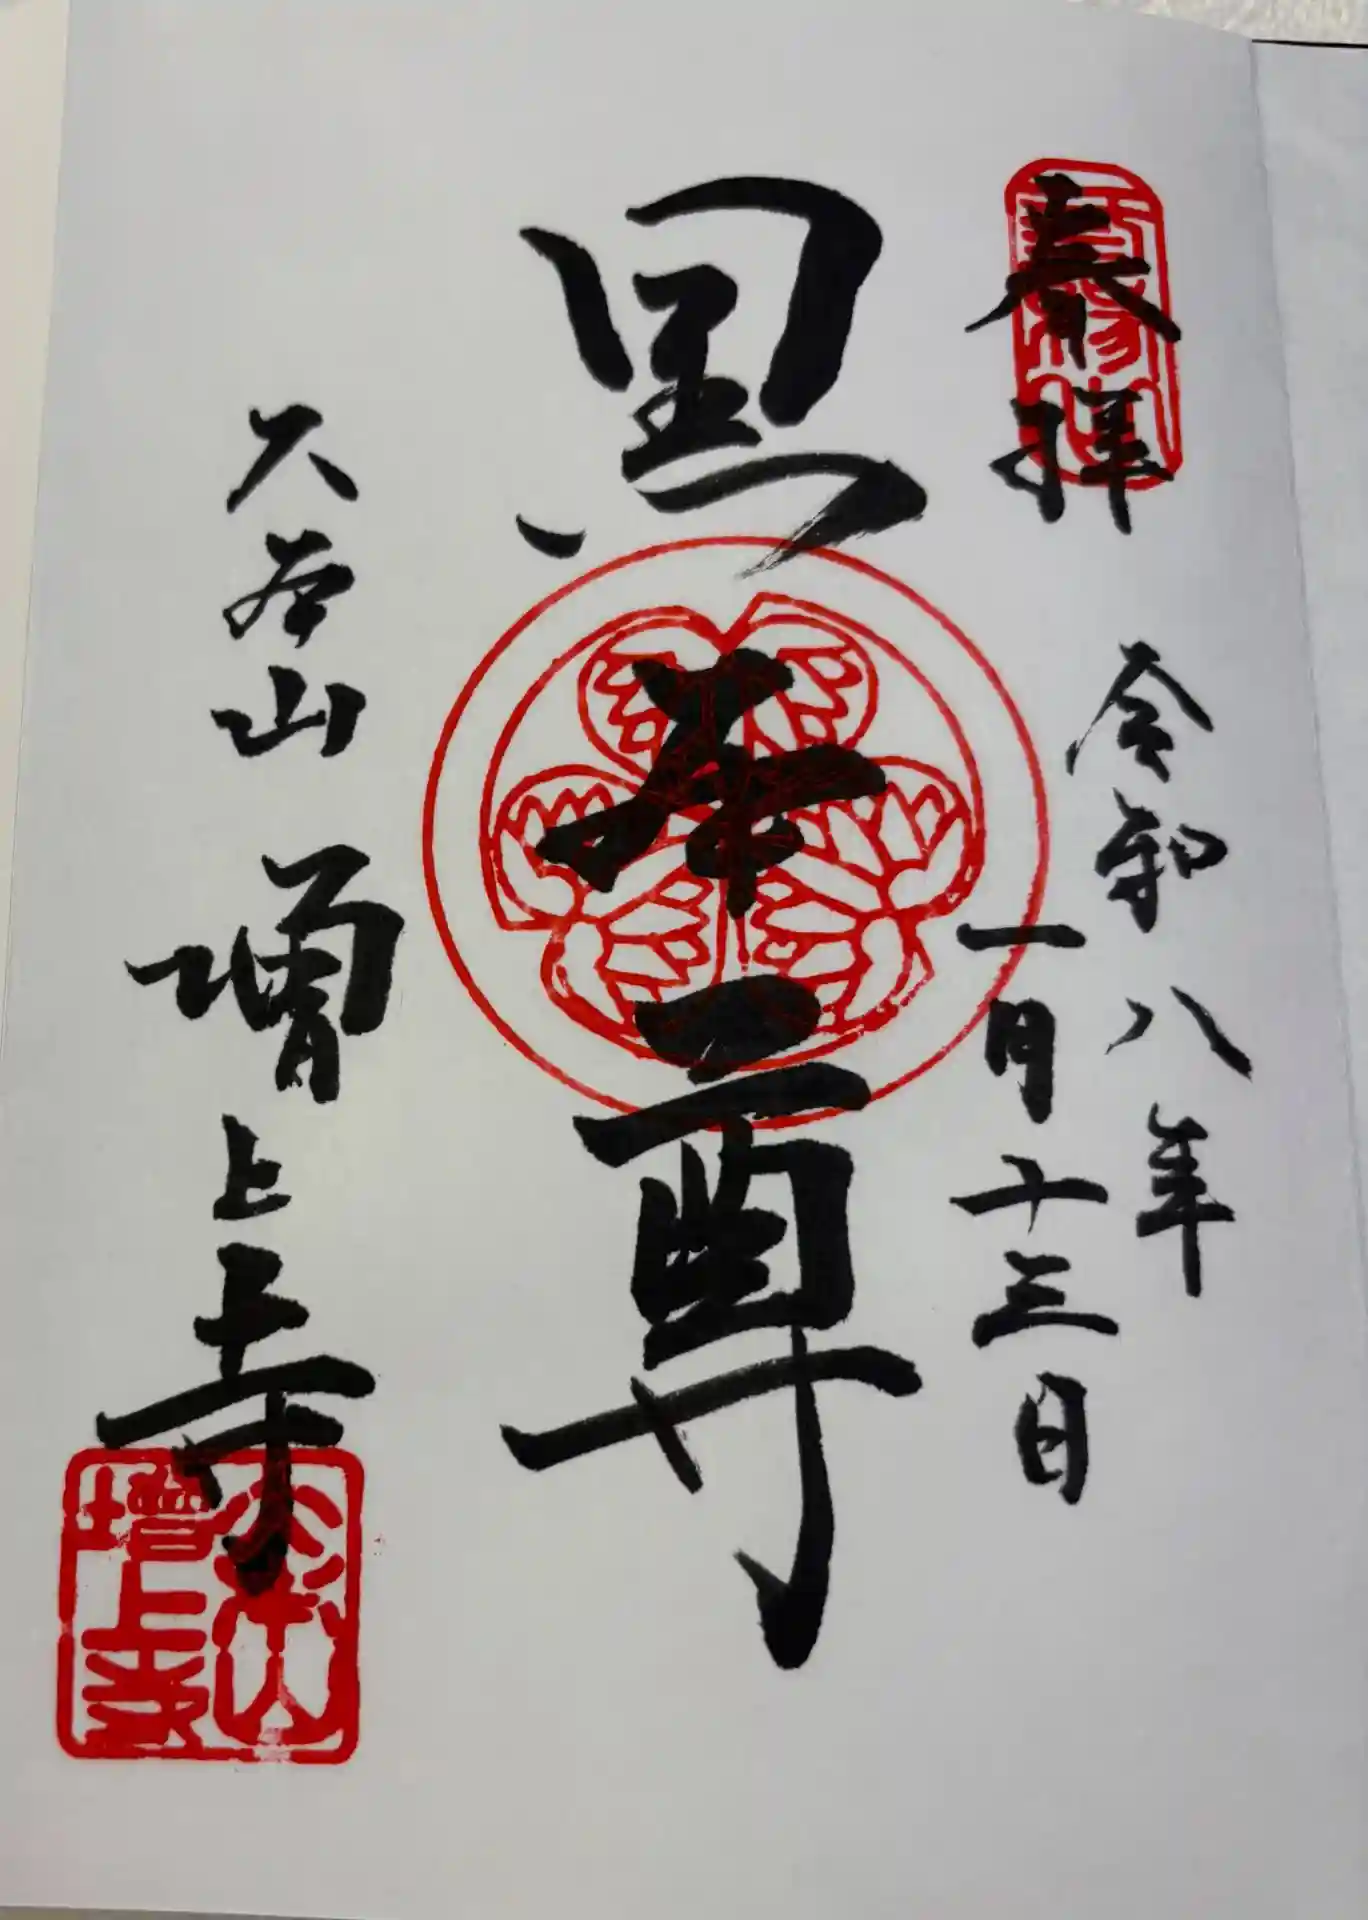 奉拝
令和八年
一月十三日
黒本尊
大本山 増上寺
大本山
增上寺